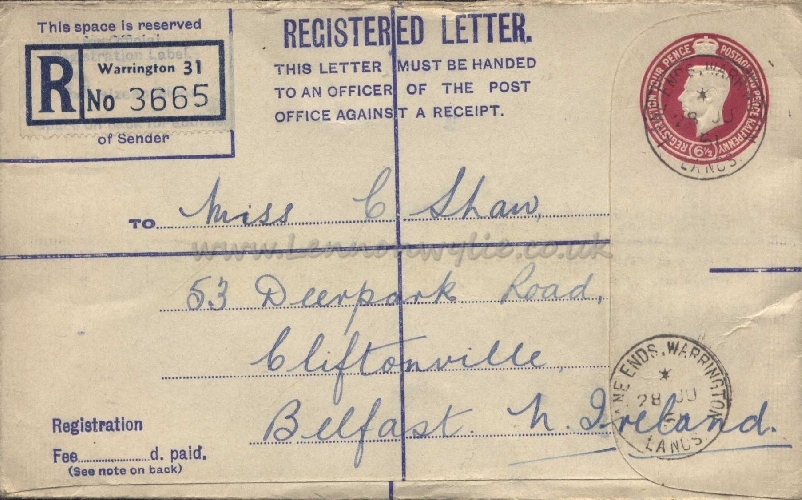 This space is reserved
R
Warrington 31
No 3665
of Sender
REGISTERED LETTER.
THIS LETTER MUST BE HANDED
TO AN OFFICER OF THE POST
OFFICE AGAINST A RECEIPT.
REGISTRATION FOUR PENCE POSTAGE TWO PENCE HALFPENNY
6½
28 JU
LANCS
TO Miss C Shaw,
www.Lennonwylie.co.uk
53 Deerpark Road,
Cliftonville,
Belfast. N. Ireland.
LANE ENDS. WARRINGTON
28 JU
LANCS
Registration
Fee d. paid.
(See note on back)